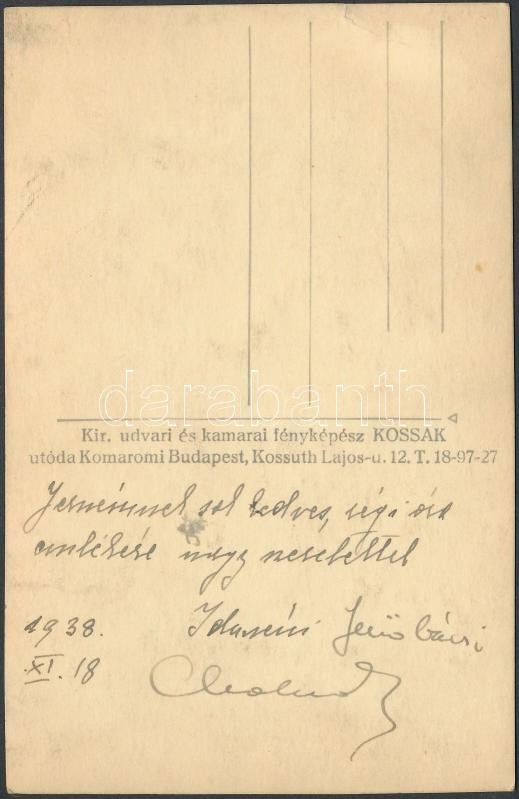 darabanth
Kir. udvari és kamarai fényképész KOSSAK
utóda Komaromi Budapest, Kossuth Lajos-u. 12. T. 18-97-27
sok kedves, régi
emlékére nagy szeretettel
1938. Jenő bácsi
XI. 18